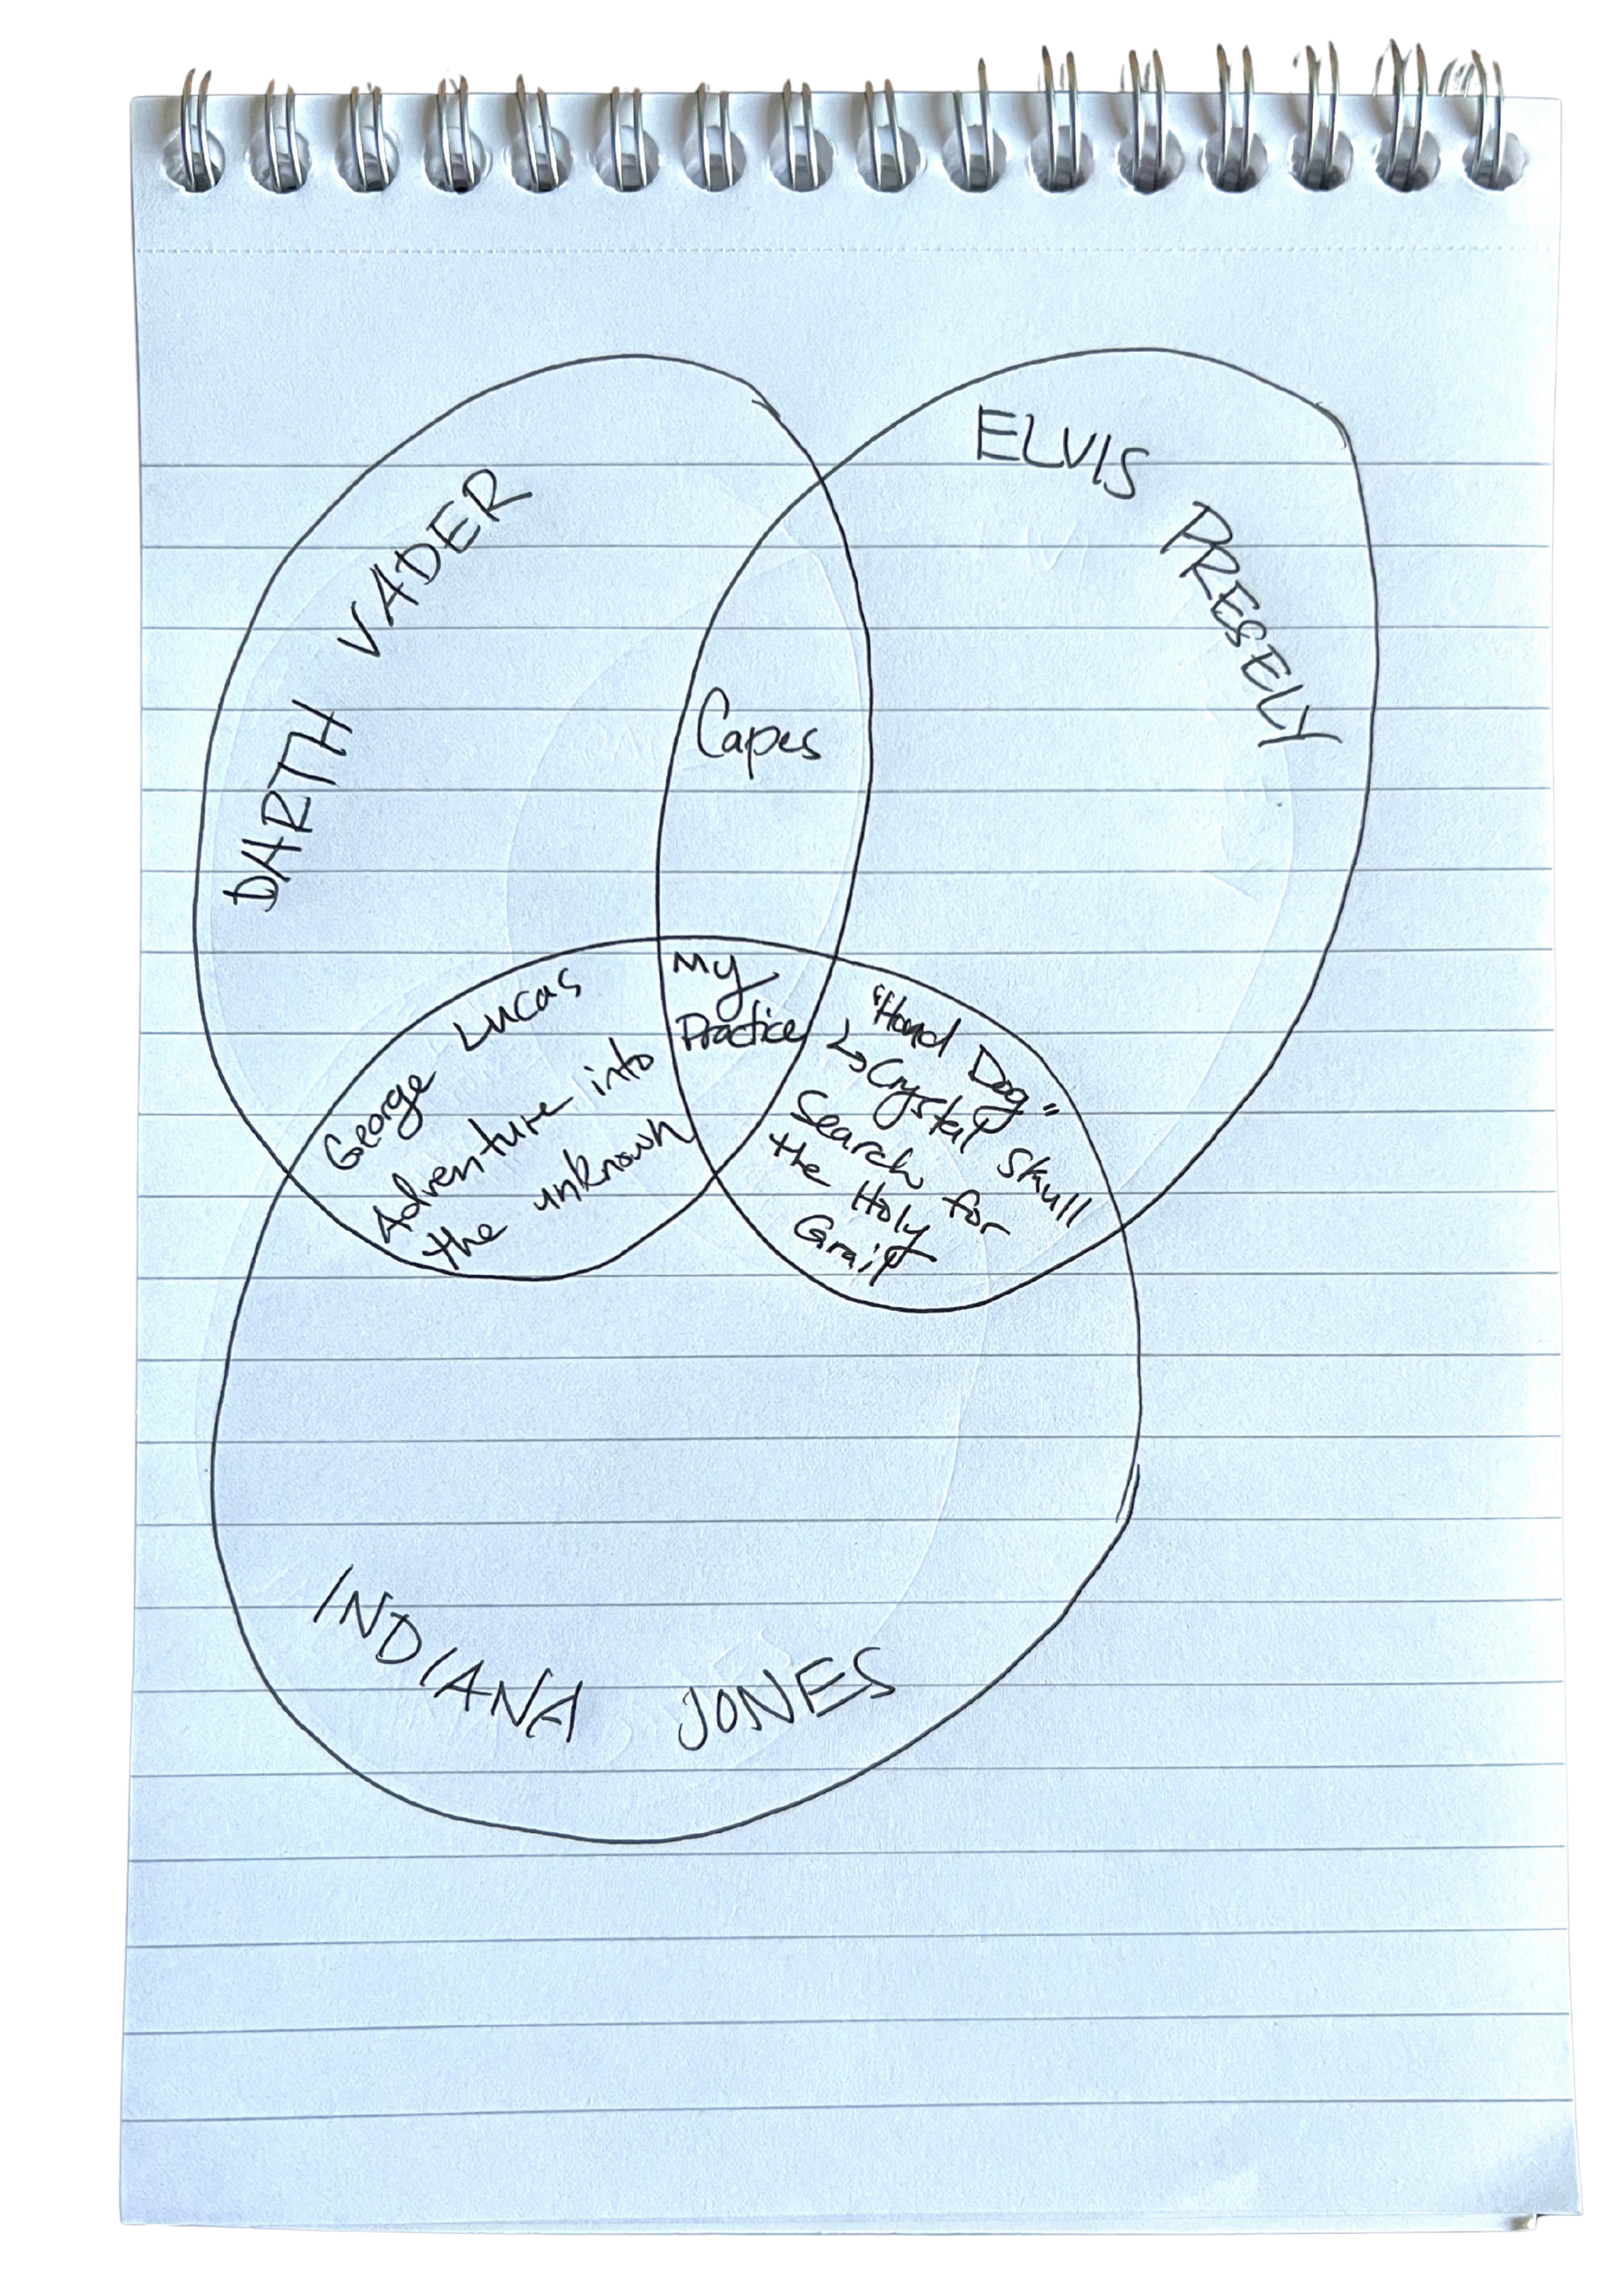 DARTH VADER
ELVIS PRESELY
Capes
My
Practice
George Lucas
Adventure into
the unknown
"Hond Dog"
↳ Crystal Skull
Search for
the Holy
Grail
INDIANA JONES